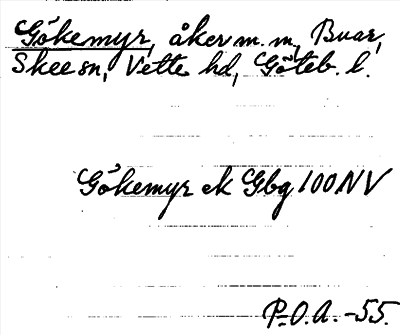 Gökemyr, åker m. m, Buar,
Skee sn, Vette hd, Göteb. l.
Gökemyr ek Gbg 100 NV
P.O.A. -55.